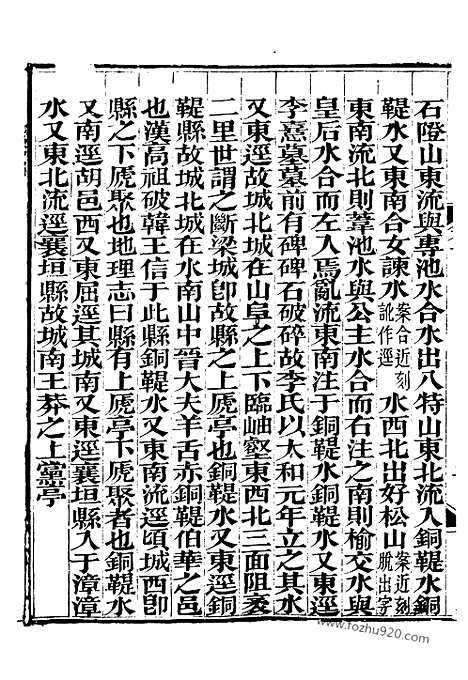 石隥山東流與專池水合水出八特山東北流入銅鞮水銅
鞮水又東南合女諫水案合近刻訛作逕水西北出好松山案近刻脫出字
東南流北則葦池水與公主水合而右注之南則榆交水與
皇后水合而左入焉亂流東南注于銅鞮水銅鞮水又東逕
李憙墓墓前有碑碑石破碎故李氏以太和元年立之其水
又東逕故城北城在山阜之上下臨岫壑東西北三面阻袤
二里世謂之斷梁城卽故縣之上虒亭也銅鞮水又東逕銅
鞮縣故城北城在水南山中晉大夫羊舌赤銅鞮伯華之邑
也漢高祖破韓王信于此縣銅鞮水又東南流逕頃城西卽
縣之下虒聚也地理志曰縣有上虒亭下虒聚者也銅鞮水
又南逕胡邑西又東屈逕其城南又東逕襄垣縣入于漳漳
水又東北流逕襄垣縣故城南王莽之上黨亭
www.fozhu920.com